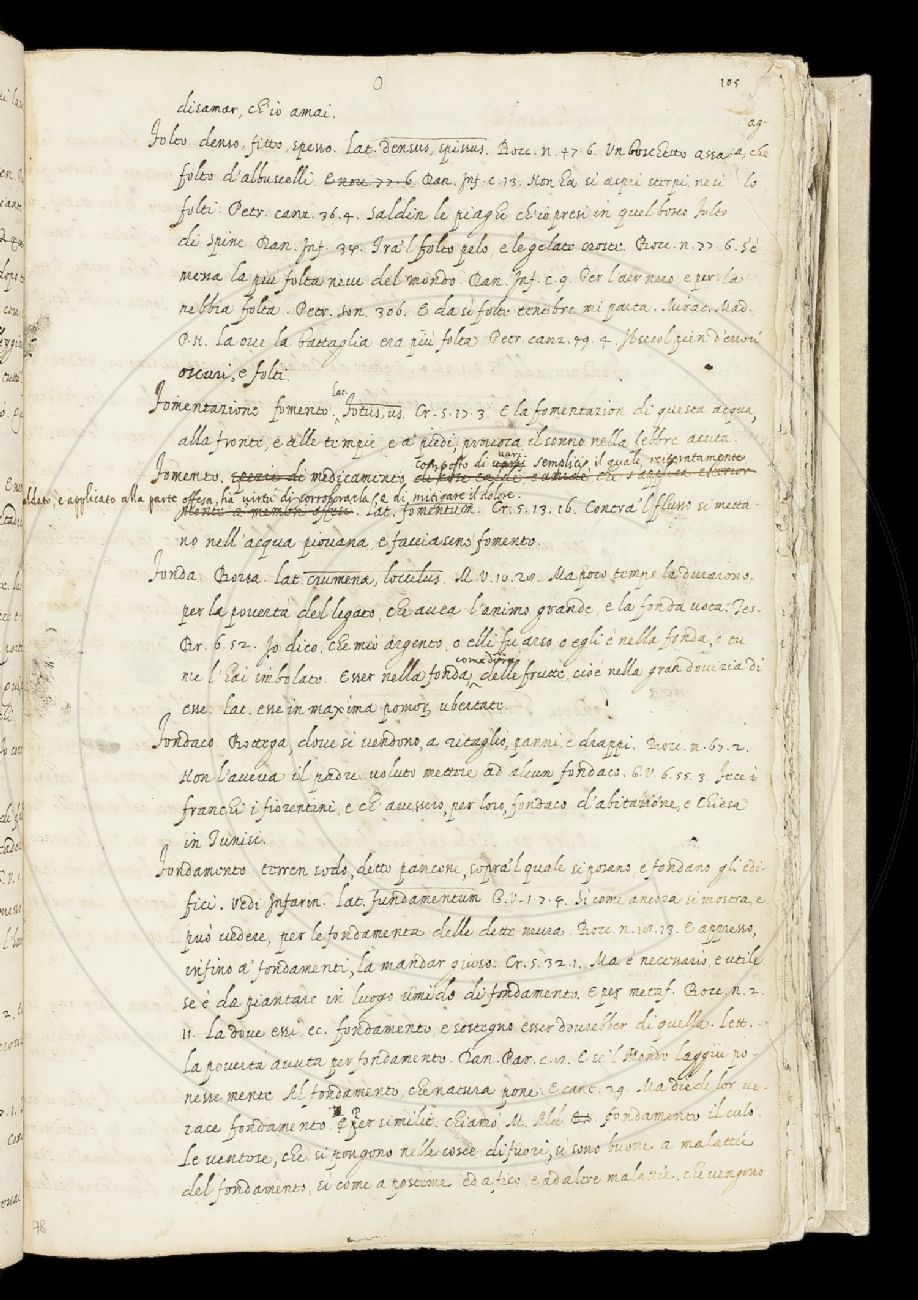 O 105
disamar, ch'io amai.
ag-
Folto denso, fitto, spesso. Lat. densus, spissus. Bocc. n. 47. 6. Un boschetto assai, che
folto d'albuscelli. E nov. 77. 6 Dan. Inf. c. 13. Non ha si aspri sterpi, ne si lo
folti. Petr. canz. 36. 4. Saldin le piaghe ch'io presi in quel bosco Folto
di spine. Dan. Inf. 34. Tra'l folto pelo, e le gelate croste. Bocc. n. 77. 6. Se
mena la più folta neve del mondo. Dan. Inf. c. 9. Per l'aer nero e per la
nebbia folta. Petr. son. 306. E da sì folte tenebre mi parta. Mirac. Mad.
P. N. La ove la battaglia era più folta Petr. canz. 49. 4. Il secol pien d'errori
oscuri, e folti.
Fomentazione fomento. Lat. Fotus, us. Cr. 5. 17. 3. E la fomentazion di questa acqua,
alla fronte, e alle tempie, e a' piedi, provoca il sonno nella febbre acuta.
composto di varj semplici il quale, reiteratamente
Fomento. spezie di medicamento
scaldato, e applicato alla parte offesa, ha virtù di corroborarla, e di mitigare il dolore.
membri offesi. Lat. fomentum. Cr. 5. 13. 16. Contra'l flusso si metta-
no nell'acqua piovana, e facciasene fomento.
Fonda Borsa. lat. crumena, locculus. M. V. 10. 28. Ma poco tempo la durarono,
per la povertà del legato, che avea l'animo grande, e la fonda vota. Tes.
Br. 6. 52. Io dico, che mio argento, o elli fu arso, o egli è nella fonda, o tu
come dire
me l'hai imbolato. Esser nella fonda, delle frutte, cioè nella gran dovizia di
esse. lat. esse in maxima pomor ubertate.
Fondaco Bottega, dove si vendono, a ritaglio, panni, e drappi. Bocc. n. 67. 2.
Non l'aveva il padre voluto mettere ad alcun fondaco. G. V. 6. 55. 3. Fece i
franchi i fiorentini, e ch'avessero, per loro, fondaco d'abitazione, e Chiesa
in Tunisi.
Fondamento terren sodo, detto pancone, sopra'l quale si posano, e fondano gli edi-
fici. Vedi Infarin. lat. fundamentum G. V. 1. 7. 4. Si come ancora si mostra, e
può vedere, per le fondamenta delle dette mura. Bocc. n. 18. 13. E appresso,
infino a' fondamenti, la mandar giuso. Cr. 5. 32. 1. Ma è necessario, e utile
se è da piantare in luogo umido di fondamento. E per metaf. Bocc. n. 2.
11. La dove essi ec. fondamento, e sostegno esser dovrebber di quella. Lett.
la povertà avuta per fondamento. Dan. Par. c. 8. E se'l Mondo laggiù po-
nesse mente Al fondamento, che natura pone. E cant. 29. Ma diede lor ve-
race fondamento. E per similit. chiamò M. Ald. fondamento il culo.
Le ventose, che si pongono nelle cosce di fuori, si sono buone a malattie
del fondamento, si come a posteme ed a fico, e ad altre malattie, che vengono
78